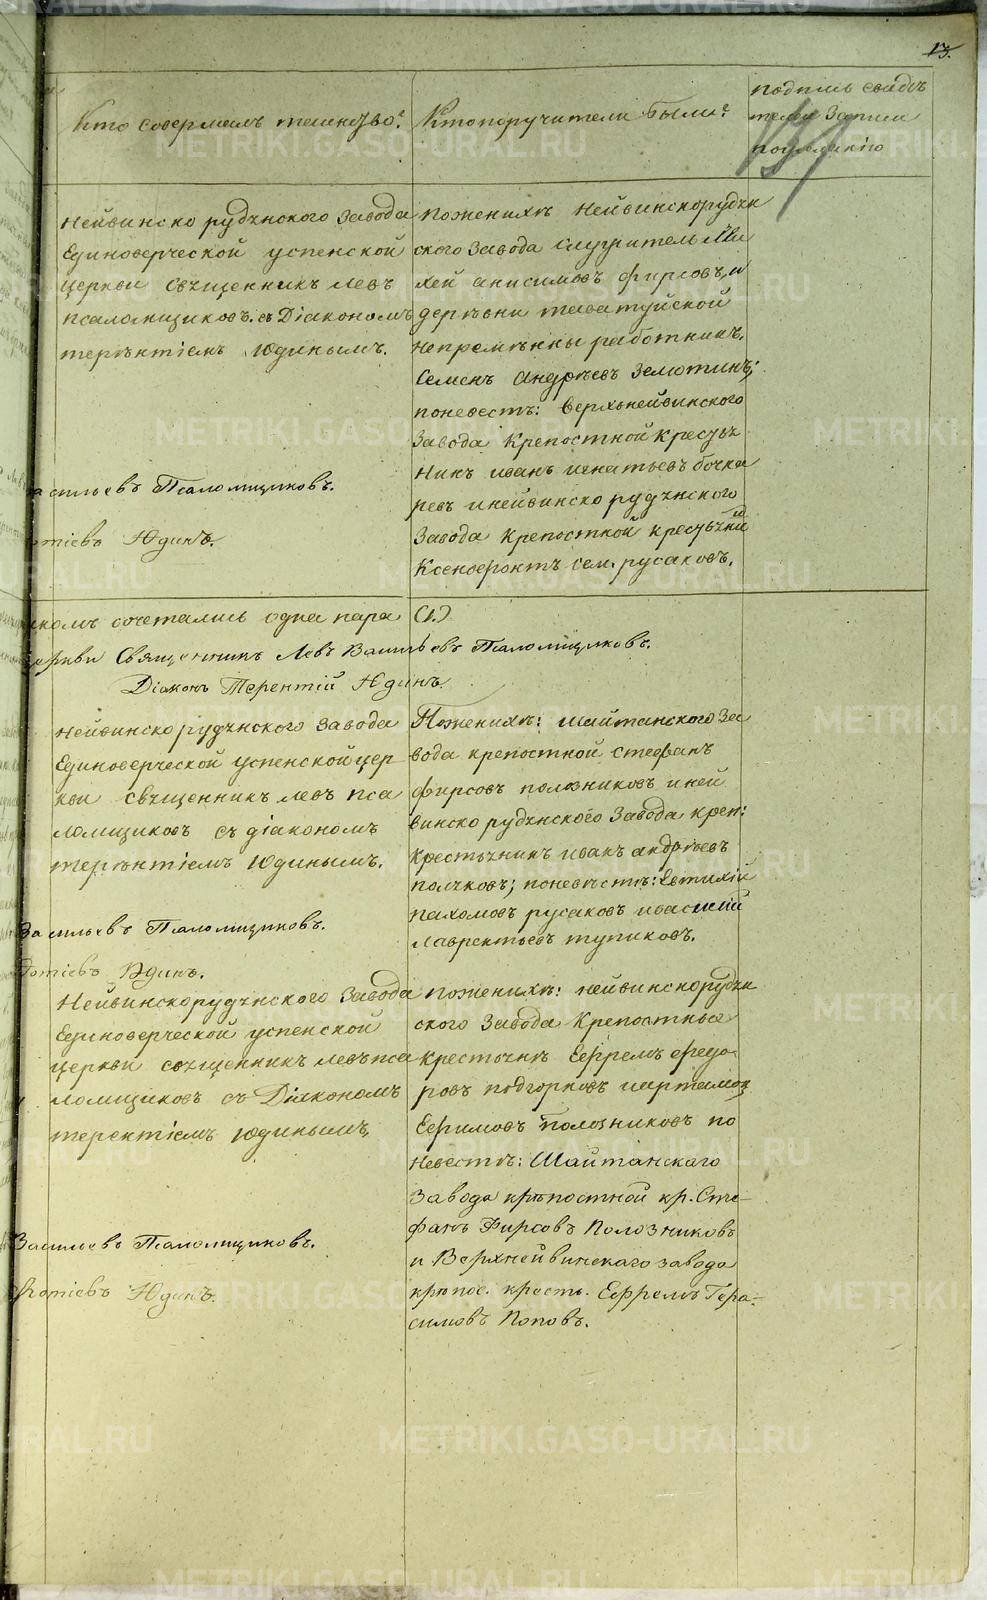 13.
Кто совершалъ таинство?
Кто поручители были?
подпись свидѣ
телей записи
по желанію
Нейвинско рудянского завода
Единоверческой успенской
церкви священникъ левъ
псаломщиковъ. съ Діакономъ
терѣнтіемъ Юдинымъ.
По женихѣ Нейвинскорудян
ского завода служитель Ми
хей анисимовъ фирсовъ, и
деревни таватуйской
непремѣнны работникъ.
Семенъ Андрѣевъ Земютинъ;
по невестѣ: верхьнейвинского
завода крепостной кресьян
никъ иванъ игнатьевъ бочка
ревъ и нейвинско рудянского
завода крепостной кресьяни
Ксенофонтъ сем. русаковъ.
асильевъ Псаломщиковъ.
отіевъ Юдинъ.
комъ сочетались одна пара (1.)
церкви Священникъ Левъ Васильевъ Псаломщиковъ.
Діаконъ Терентій Юдинъ
Нейвинскорудянского завода
Единоверческой успенской цер
кви священникъ левъ пса
ломщиковъ съ діакономъ
терѣнтіемъ Юдинымъ.
По женихѣ: шайтанского за
вода крепостной стефанъ
фирсовъ полозниковъ и ней
винско рудянского завода креп:
крестьянинъ иванъ андрѣевъ
полчковъ; по невѣстѣ: Евтихій
пахомовъ русаковъ и василій
лаврентьевъ тупиковъ.
Васильевъ Псаломщиковъ.
отіевъ Юдинъ.
Нейвинскорудянского завода
Единоверческой успенской
церкви священникъ левъ пса
ломщиковъ съ Діякономъ
терентіемъ Юдинымъ
По женихѣ: нейвинскорудян
ского завода крепостные
крестьяне Ефремъ федо-
ровъ подгорновъ и артамонъ
Ефимовъ Полозниковъ по
невестѣ: Шайтанскаго
завода крѣпостной кр. Сте-
фанъ Фирсовъ Полозниковъ
и Верхнейвинскаго завода
крѣпос. кресть. Ефремъ Гера-
симовъ Поповъ.
Васильевъ Псаломщиковъ.
фотіевъ Юдинъ.
METRIKI.GASO-URAL.RU